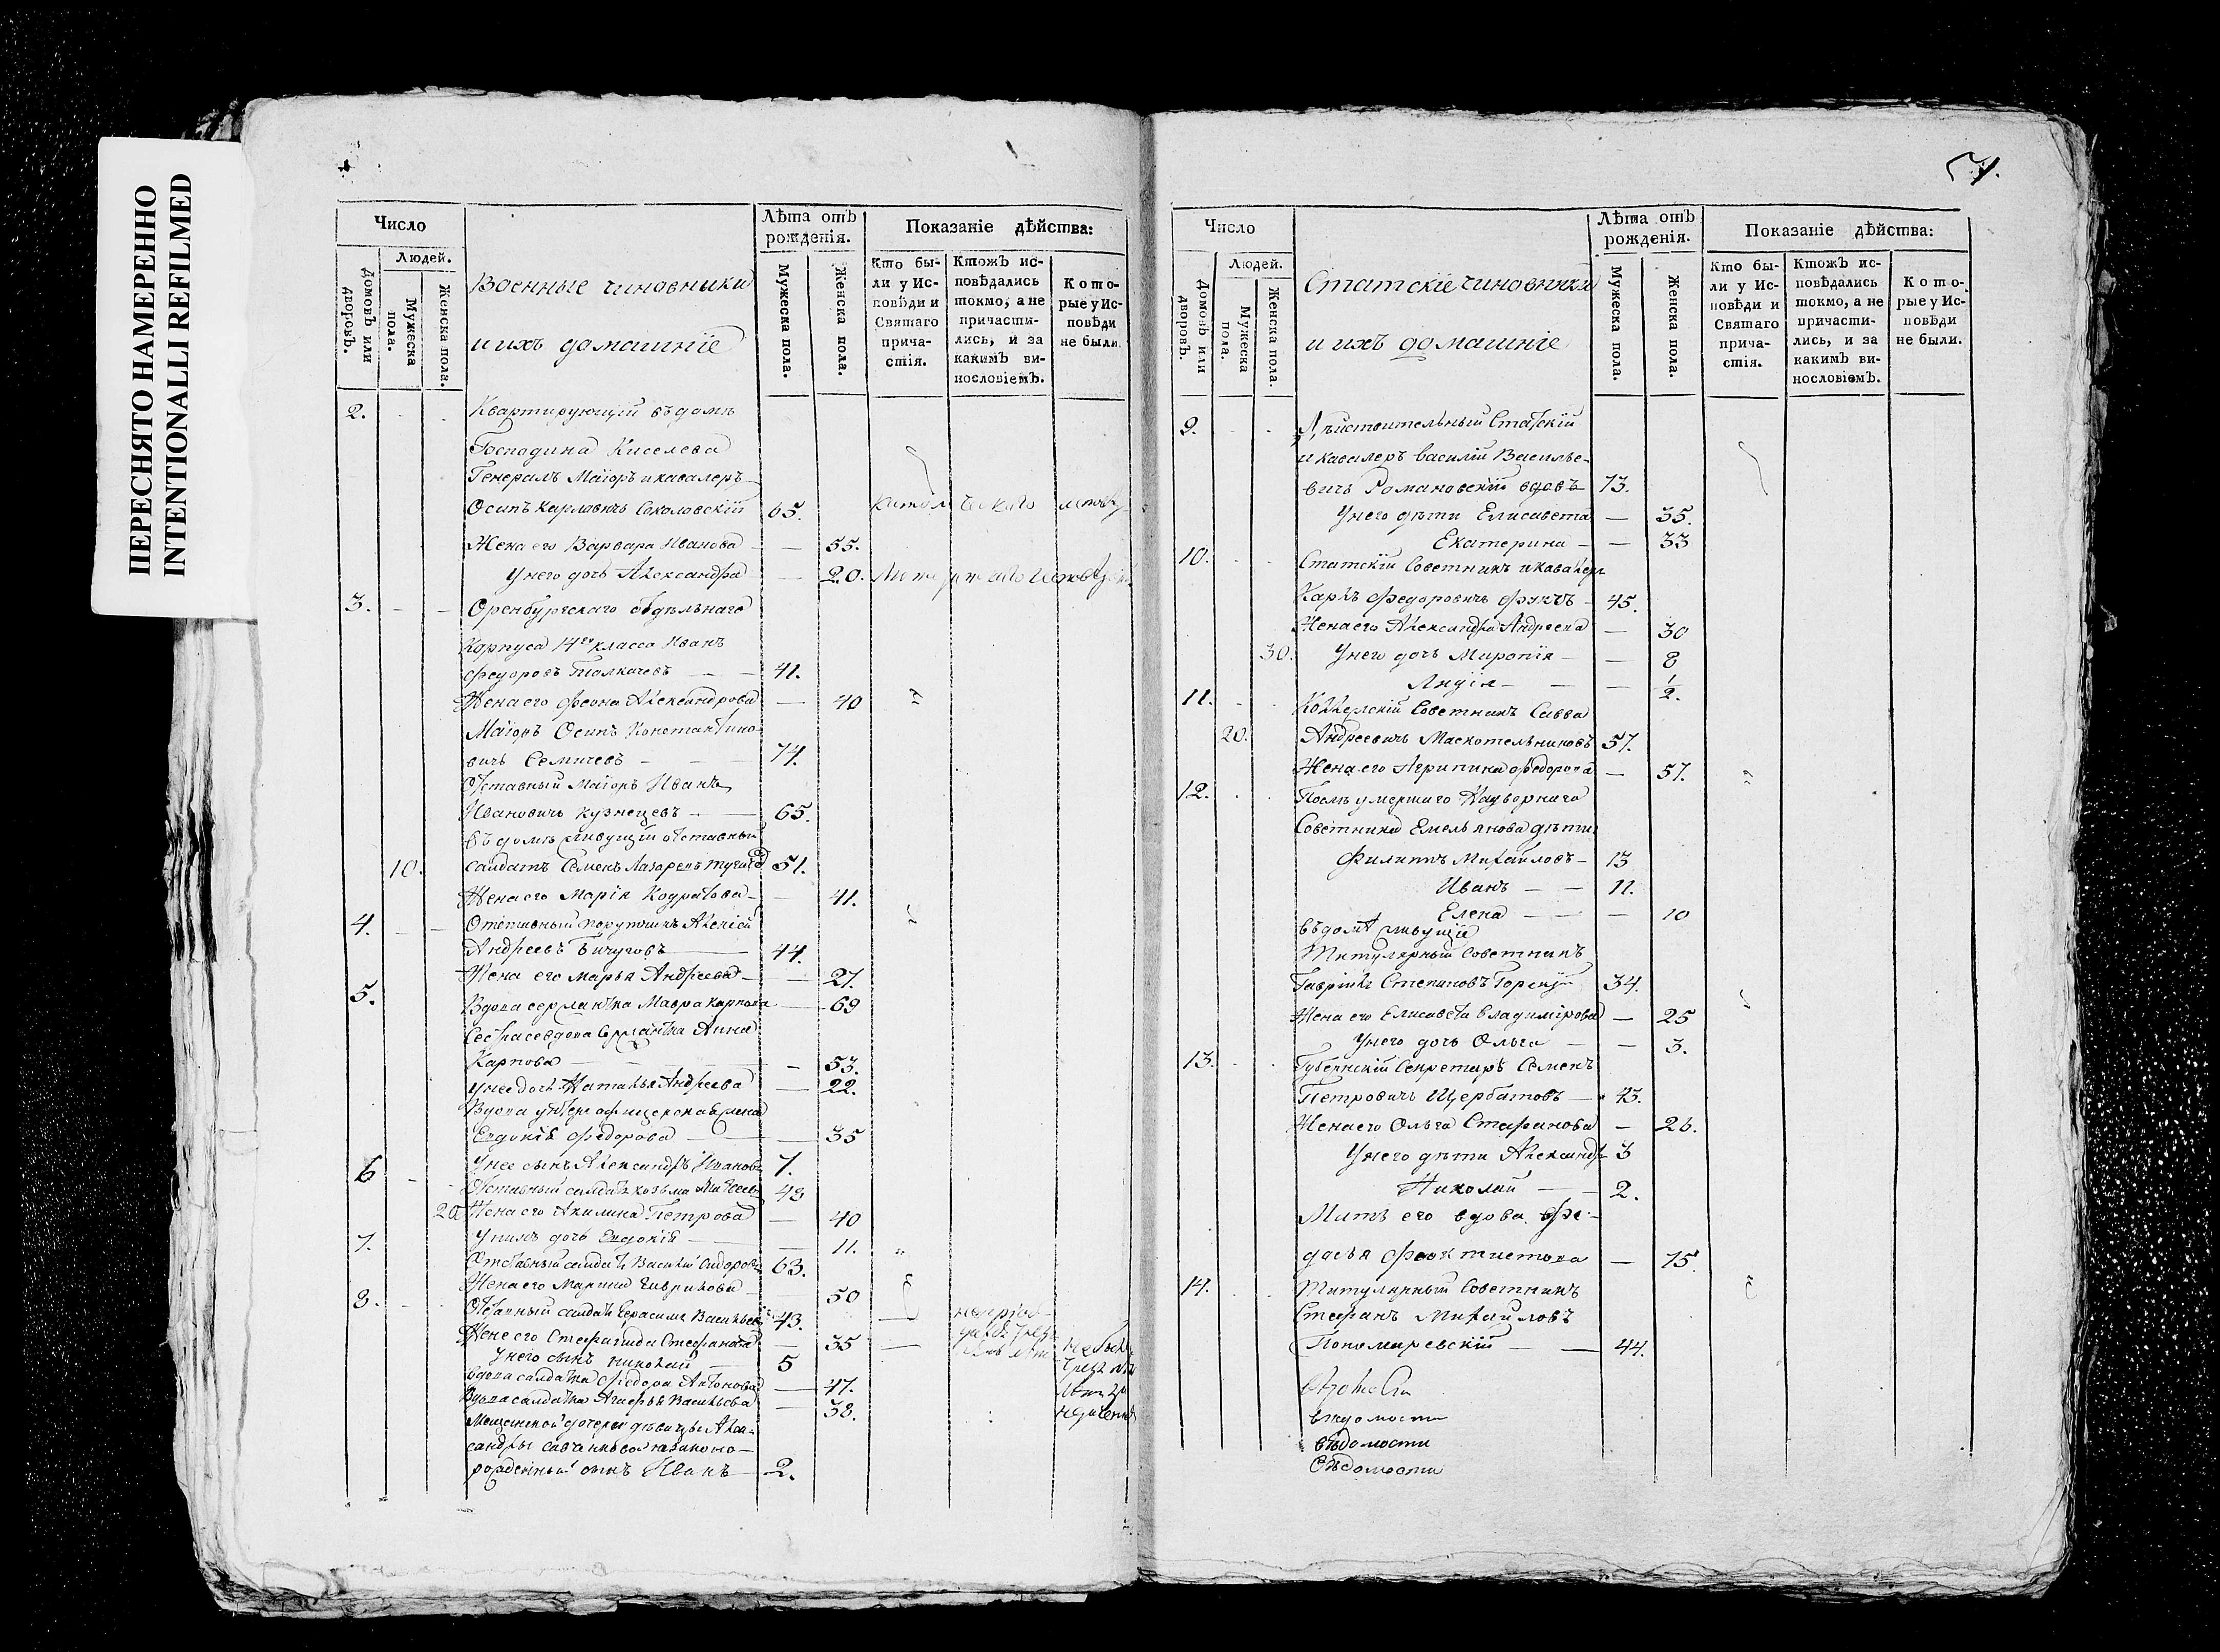 ПЕРЕСНЯТО НАМЕРЕННО
INTENTIONALLI REFILMED
Число
Людей.
Домовъ или дворовъ.
Мужеска пола.
Женска пола.
Военные чиновники
и ихъ домашніе
Лѣта отъ
рожденія.
Мужеска пола.
Женска пола.
Показаніе дѣйства:
Кто бы-
ли у Ис-
повѣди и
Святаго
прича-
стія.
Ктожъ ис-
повѣдались
токмо, а не
причасти-
лись, и за
какимъ ви-
нословіемъ.
Кото-
рые у Ис-
повѣди
не были.
2. Квартирующій въ домѣ
Господина Киселева
Генералъ Маіоръ и кавалеръ
Осипъ Карловичъ Соколовскій 65.
Жена его Варвара Иванова — 55.
У него дочь Александра — 20.
3. Оренбургскаго отдѣльнаго
Корпуса 14го класса Иванъ
Федоровъ Толкачевъ 41.
Жена его Александрова — 40
Маіоръ Осипъ Константино-
вичъ Семичевъ — 74.
Отставный Маіоръ Иванъ
Ивановичъ Кузнецевъ — 65.
Въ домѣ живущій отставный
10. салдатъ Семенъ Лазаревъ 51.
Жена его Марія Кодратова — 41.
4. Отставный порутчикъ Алексій
Андреевъ Бичуговъ 44.
Жена его Марья Андреева — 27.
5. Вдова сержантка Мавра Карпова — 69
Сестра ее вдова сержантка Анна
Карпова — 53.
У нее дочь Наталья Андреева — 22.
Вдова унтеръ офицерска жена
Евдокія Федорова — 35
6 У нее сынъ Александръ Ивановъ 7.
Отставный салдатъ Козьма 48
20 Жена его Акилина Петрова — 40
7. У нихъ дочь Евдокія — 11.
Отставный салдатъ Василій Сидоровъ 63.
Жена его Гаврилова 50
8. Отставный салдатъ Герасимъ Васильевъ 43.
Жена его Стефанида Стефанова — 35
У него сынъ Николай — 5
Вдова салдатка Федора Антонова — 47.
Вдова салдатка Агафья Васильева — 38.
Мещанской дочери дѣвицы Алек-
сандры
рожденный сынъ Иванъ — 2.
Число
Людей.
Домовъ или дворовъ.
Мужеска пола.
Женска пола.
Статскіе чиновники
и ихъ домашніе
Лѣта отъ
рожденія.
Мужеска пола.
Женска пола.
Показаніе дѣйства:
Кто бы-
ли у Ис-
повѣди и
Святаго
прича-
стія.
Ктожъ ис-
повѣдались
токмо, а не
причасти-
лись, и за
какимъ ви-
нословіемъ.
Кото-
рые у Ис-
повѣди
не были.
9. Дѣйствительный Статскій
и кавалеръ Василій Василье-
вичъ Романовскій вдовъ 73.
У него дѣти Елисавета — 35.
Екатерина — 33
10. Статскій Советникъ и кавалеръ
Карлъ Федоровичъ Фуксъ 45.
Жена его Александра Андреева — 30
30. У него дочь Миропія — 8
Лидія — 1/2.
11. Коллежскій Советникъ Савва
20. Андреевичъ Маскотельниковъ 57.
Жена его Агрипина Федорова — 57.
12. Послѣ умершаго Надворнаго
Советника Емельянова дѣти
Филиппъ Михайловъ — 13
Иванъ — 11.
Елена — 10
въ домѣ живущіе
Титулярный Советникъ
Гавріилъ Степановъ Горскій 34.
Жена его Елисавета Владимірова — 25
У него дочь Ольга — 3.
13. Губернскій Секретарь Семенъ
Петровичъ Щербатовъ — 43.
Жена его Ольга Стефанова — 26.
У него дѣти Александръ 3
Николай — 2.
Мать его вдова Фе-
досья Феоктистова — 75.
14. Титулярный Советникъ
Стефанъ Михайловъ
Пономаревскій — 44.
вѣдомости
вѣдомости
вѣдомости